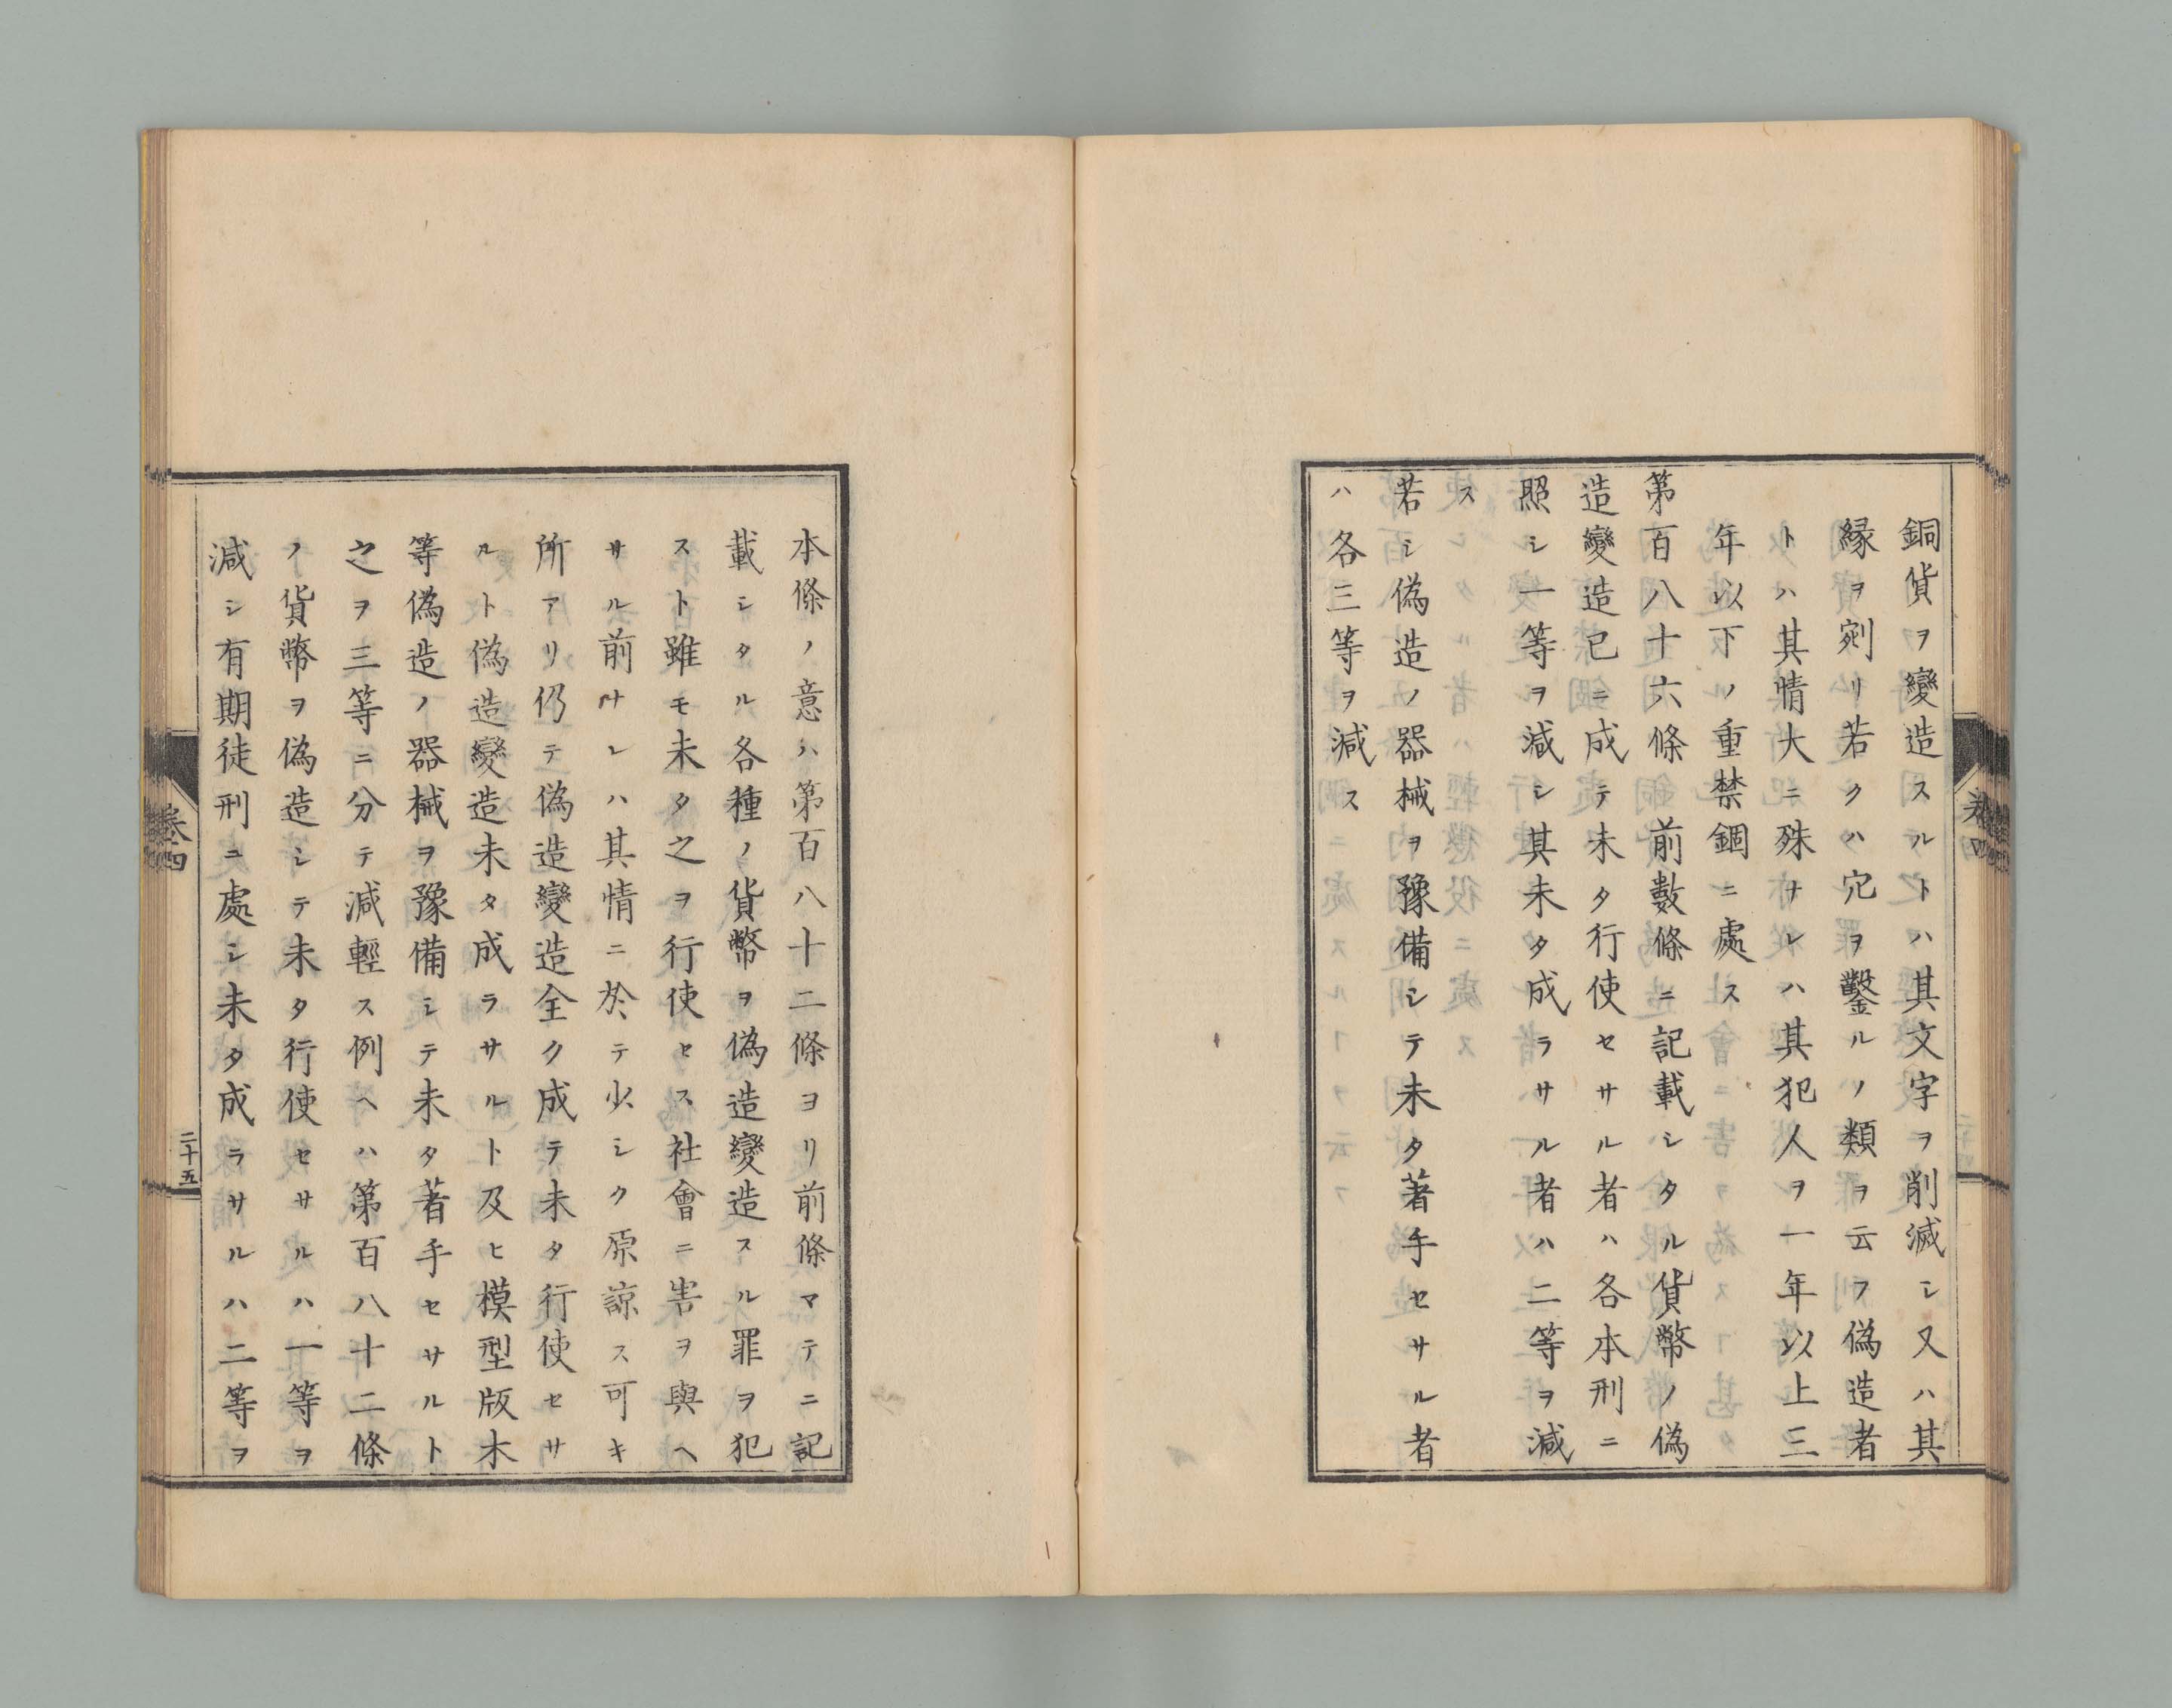 銅貨ヲ變造スルトハ其文字ヲ削滅シ又ハ其
縁ヲ剜リ若クハ穴ヲ鑿ルノ類ヲ云フ偽造者
トハ其情大ニ殊ナレハ其犯人ヲ一年以上三
年以下ノ重禁錮ニ處ス
第百八十六條前數條ニ記載シタル貨幣ノ偽
造變造已ニ成テ未タ行使セサル者ハ各本刑ニ
照シ一等ヲ減シ其未タ成ラサル者ハ二等ヲ減
ス
若シ偽造ノ器械ヲ豫備シテ未タ著手セサル者
ハ各三等ヲ減ス
卷四
本條ノ意ハ第百八十二條ヨリ前條マテニ記
載シタル各種ノ貨幣ヲ偽造變造スル罪ヲ犯
スト雖モ未タ之ヲ行使セス社會ニ害ヲ與ヘ
サル前ナレハ其情ニ於テ少シク原諒ス可キ
所アリ仍テ偽造變造全ク成テ未タ行使セサ
ルト偽造變造未タ成ラサルト及ヒ模型版木
等偽造ノ器械ヲ豫備シテ未タ著手セサルト
之ヲ三等ニ分テ減輕ス例ヘハ第百八十二條
ノ貨幣ヲ偽造シテ未タ行使セサルハ一等ヲ
減シ有期徒刑ニ處シ未タ成ラサルハ二等ヲ
卷四
二十五